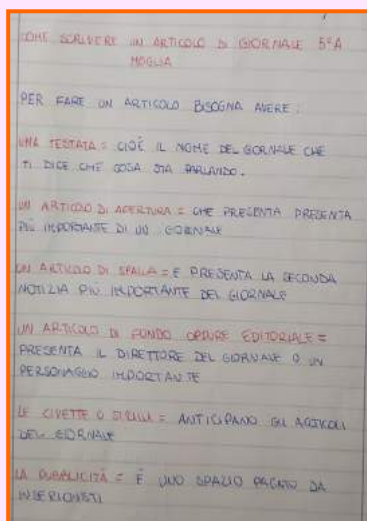 COME SCRIVERE UN ARTICOLO DI GIORNALE 5°A
MOGLIA
PER FARE UN ARTICOLO BISOGNA AVERE:
UNA TESTATA = CIOÈ IL NOME DEL GIORNALE CHE
TI DICE CHE COSA STA PARLANDO.
UN ARTICOLO DI APERTURA = CHE PRESENTA PRESENTA
PIÙ IMPORTANTE DI UN GIORNALE
UN ARTICOLO DI SPALLA = E PRESENTA LA SECONDA
NOTIZIA PIÙ IMPORTANTE DEL GIORNALE
UN ARTICOLO DI FONDO OPPURE EDITORIALE =
PRESENTA IL DIRETTORE DEL GIORNALE O UN
PERSONAGGIO IMPORTANTE
LE CIVETTE O STRILLI = ANTICIPANO GLI ARTICOLI
DEL GIORNALE
LA PUBBLICITÀ = È UNO SPAZIO PAGATO DA
INSERIONISTI